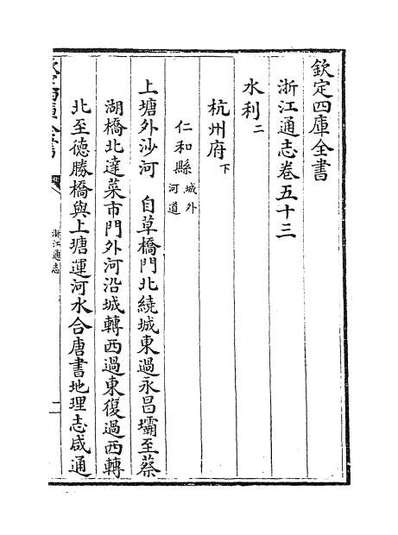 欽定四庫全書
浙江通志卷五十三
水利二
杭州府下
仁和縣城外河道
上塘外沙河　自草橋門北繞城東過永昌壩至蔡
湖橋北達菜市門外河沿城轉西過東復過西轉
北至徳勝橋與上塘運河水合唐書地理志咸通
浙江通志